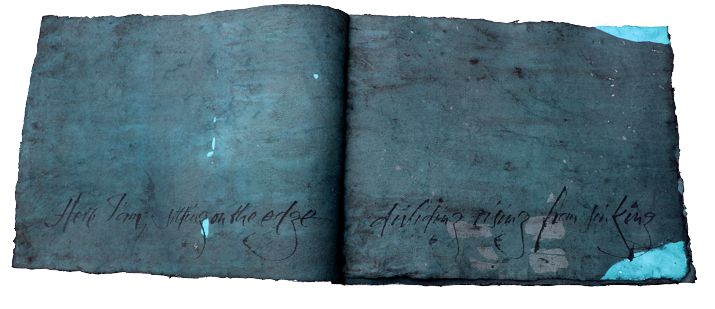 Here I am, sitting on the edge
dividing rising from sinking